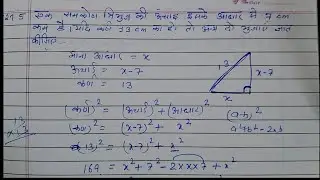 प्र. 5 एक समकोण त्रिभुज की ऊंचाई इसके आधार से 7 cm
कम है। यदि कर्ण 13 cm का हो तो अन्य दो भुजाएं ज्ञात
कीजिए।
माना आधार = x
ऊंचाई = x-7
कर्ण = 13
13
x-7
x
(कर्ण)² = (ऊंचाई)² + (आधार)²
(कर्ण)² = (x-7)² + x²
(13)² = (x-7)² + x²
169 = x² + 7² - 2×x×7 + x²
(a-b)²
a²+b²-2ab
13
×13